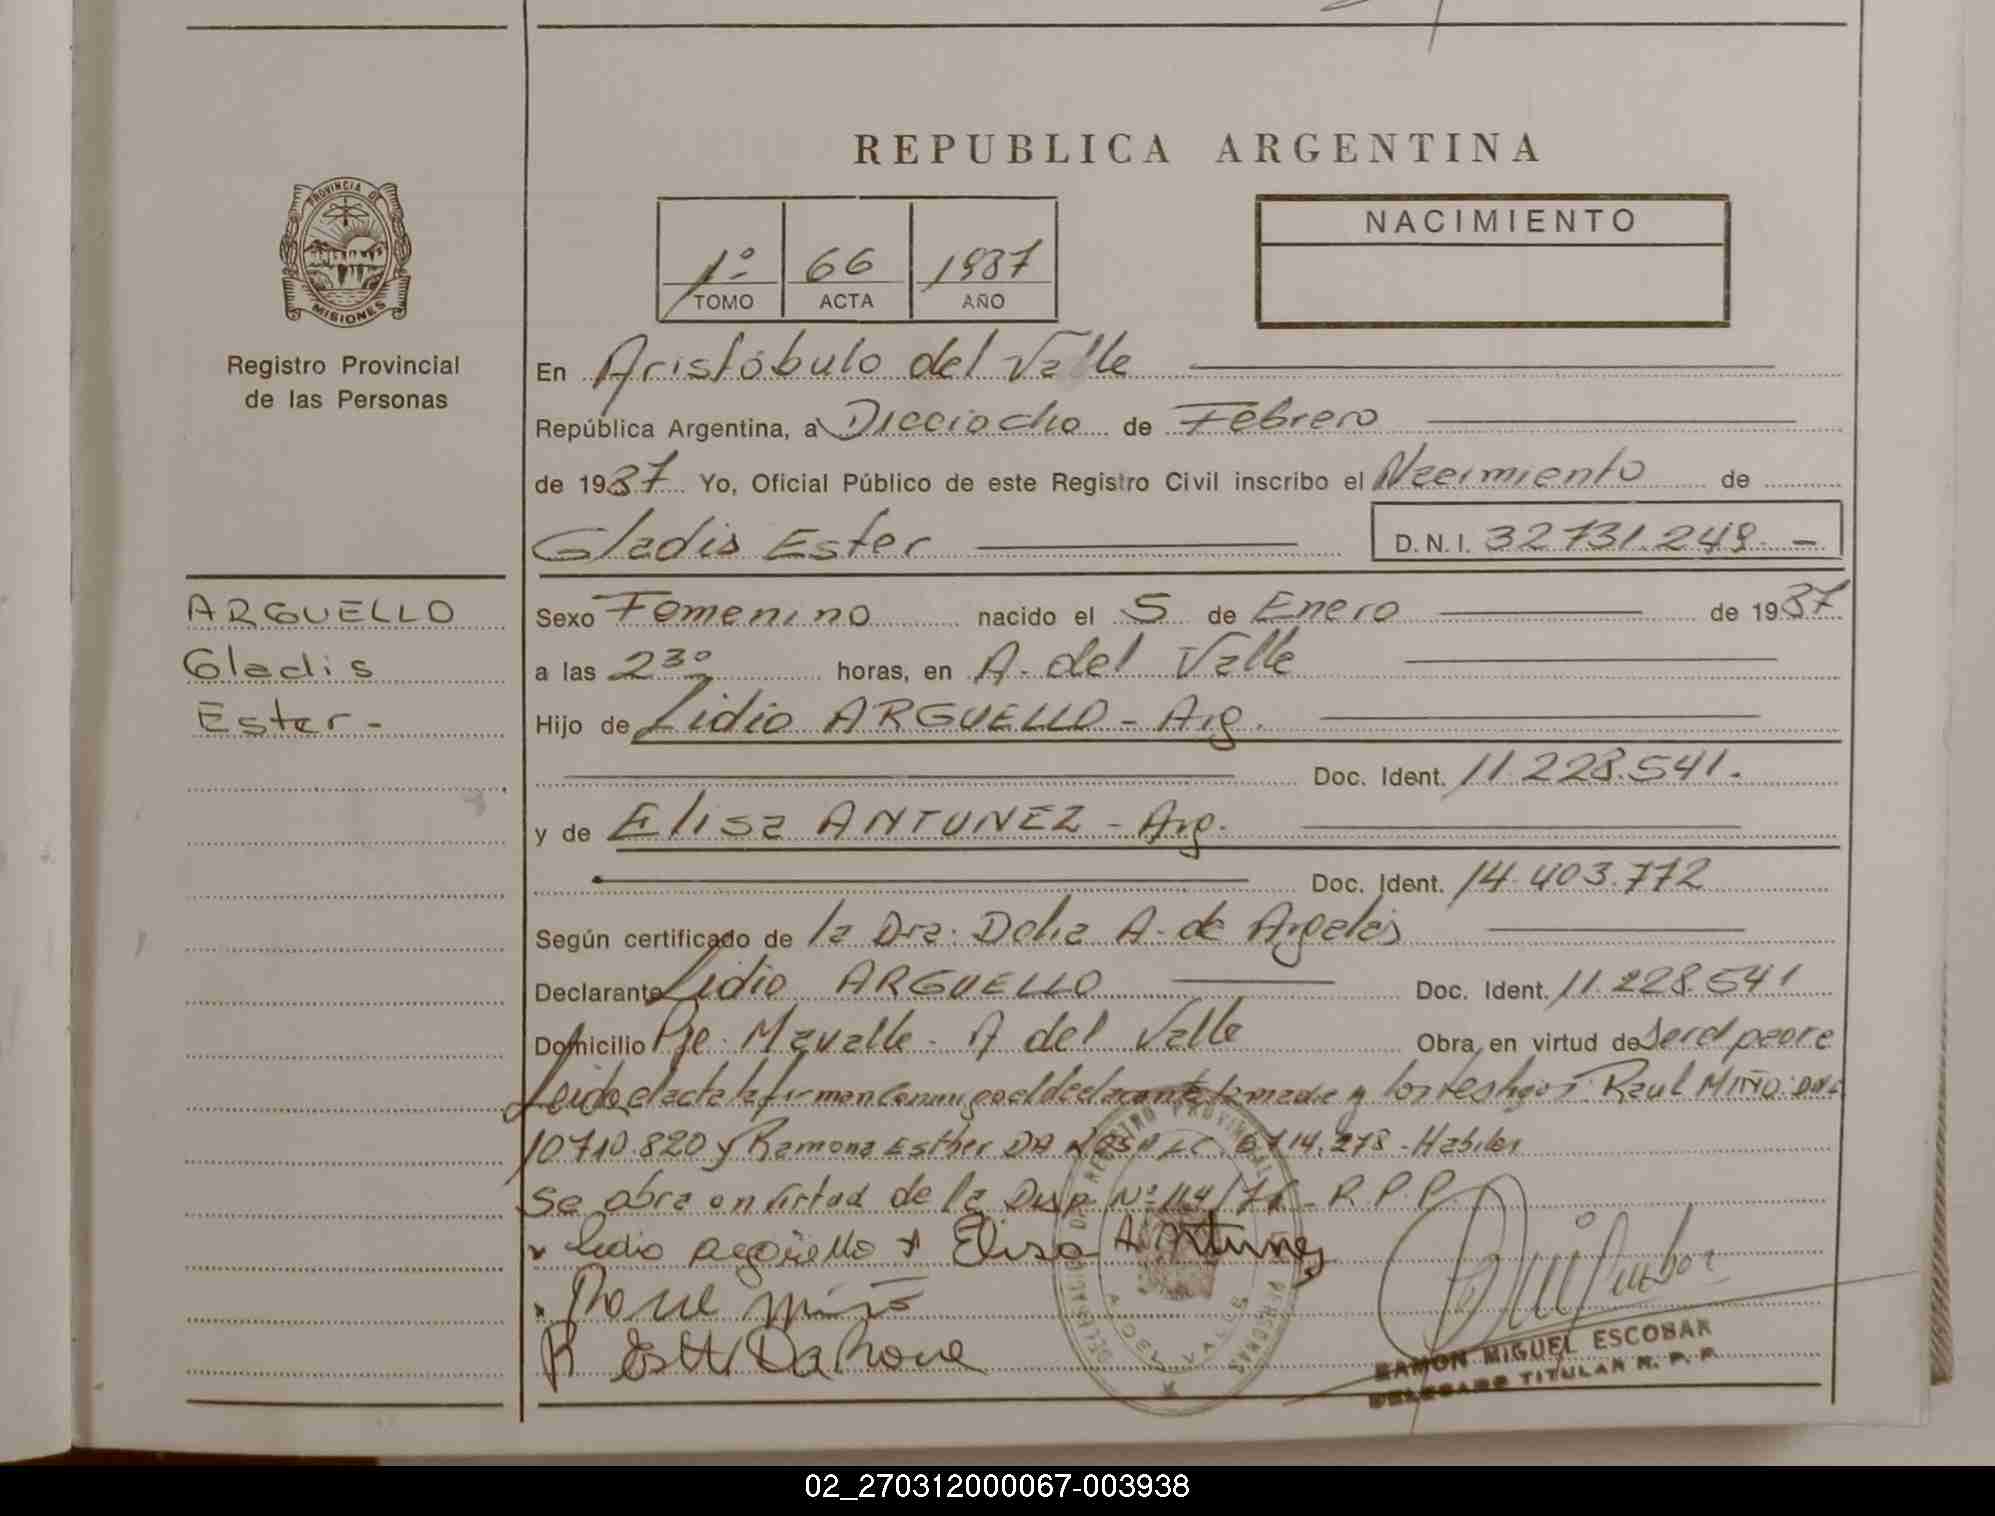 REPUBLICA ARGENTINA
PROVINCIA DE
MISIONES
Registro Provincial
de las Personas
1º 66 1987
TOMO ACTA AÑO
NACIMIENTO
En Aristóbulo del Valle
República Argentina, a Dieciocho de Febrero
de 1987 Yo, Oficial Público de este Registro Civil inscribo el Nacimiento de
Gladis Ester D.N.I. 32731.249.-
ARGUELLO
Gladis
Ester-
Sexo Femenino nacido el 5 de Enero de 1987
a las 23º horas, en A. del Valle
Hijo de Lidio ARGUELLO - Arg.
Doc. Ident. 11.228.541.
y de Elisa ANTUNEZ - Arg.
Doc. Ident. 14.403.772
Según certificado de la Dra. Delia A. de
Declarante Lidio ARGUELLO Doc. Ident. 11.228.541
Domicilio Pje. Mavalle - A del Valle Obra en virtud de Ser el padre
Leida el acta la firman conmigo el declarante la madre y los testigos: Raul MIÑO: DNI
10710.820 y Ramona Esther DA ROSA LC. 6714.278 - Habiles
Se obra en virtud de la Disp. Nº 114/ - R.P.P.
Lidio Argüello Elisa A Antunez
Raul Miño
R Esther Da Rosa
RAMON MIGUEL ESCOBAR
DELEGADO TITULAR R. P. P.
02_270312000067-003938